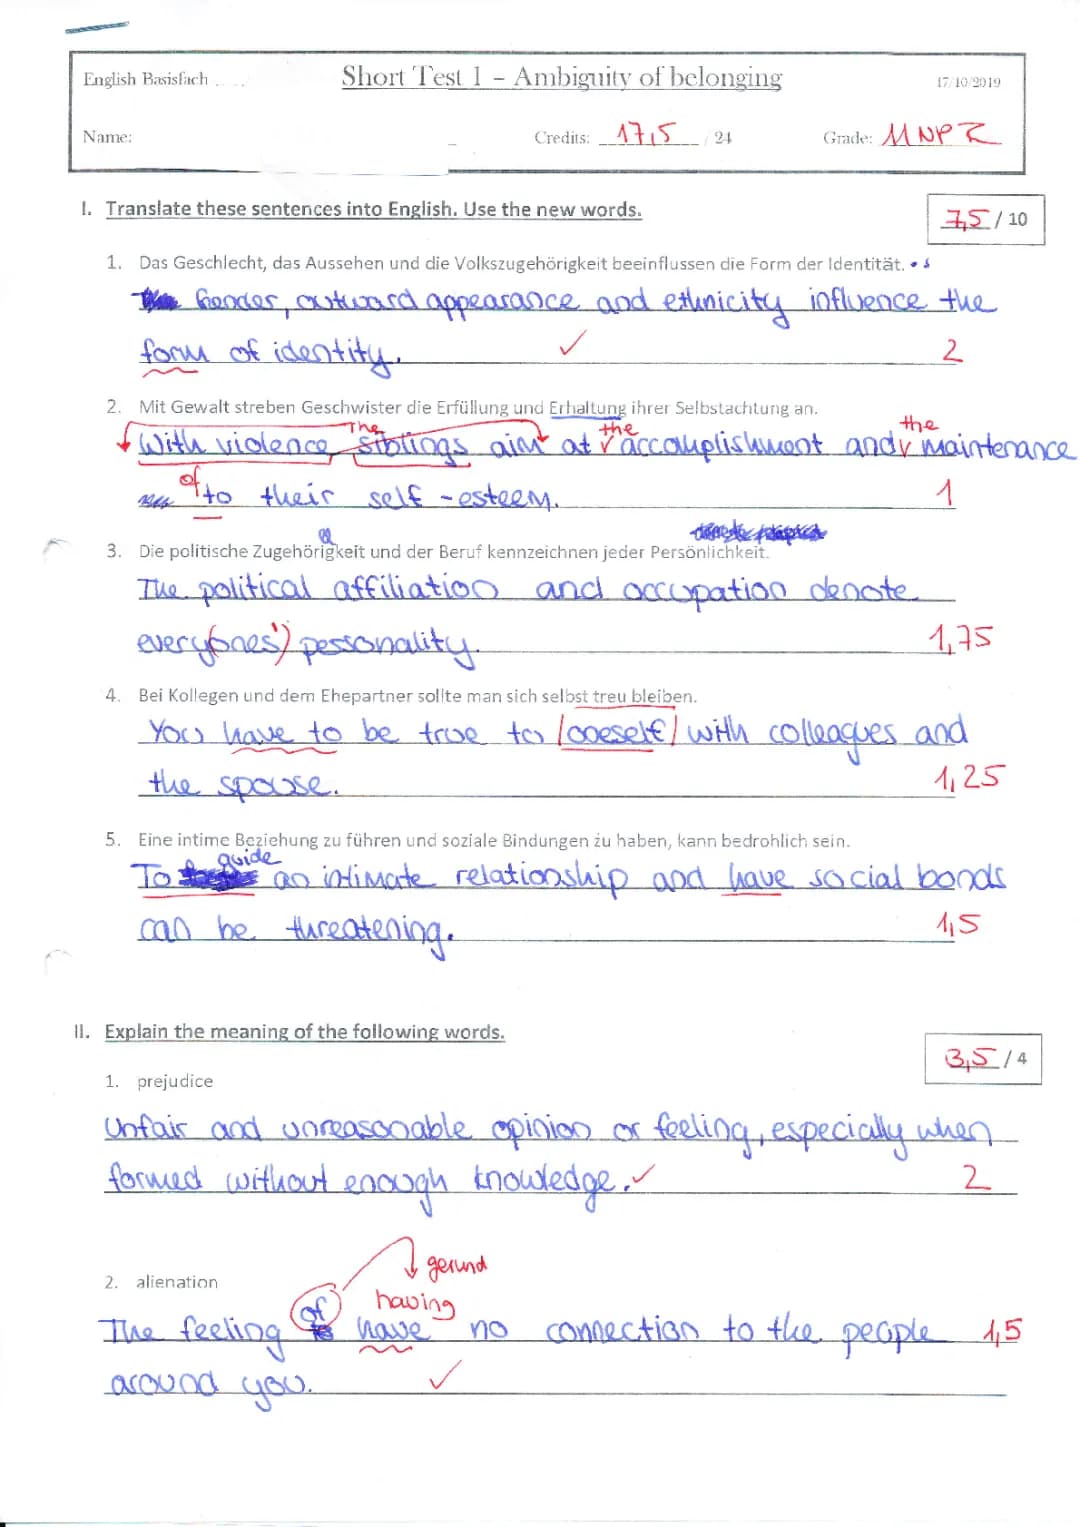 English Basisfach
Short Test 1 – Ambiguity of belonging
17/10/2019
Name:
Credits: 17,5 / 24
Grade: 11 NP
I. Translate these sentences into English. Use the new words.
7,5 / 10
1. Das Geschlecht, das Aussehen und die Volkszugehörigkeit beeinflussen die Form der Identität.
Gender, outward appearance and ethnicity influence the
form of identity. ✓ 2
2. Mit Gewalt streben Geschwister die Erfüllung und Erhaltung ihrer Selbstachtung an.
The the the
With violence siblings aim at accomplishment and maintenance
of to their self-esteem. 1
3. Die politische Zugehörigkeit und der Beruf kennzeichnen jeder Persönlichkeit.
The political affiliation and occupation denote
every(ones') personality. 1,75
4. Bei Kollegen und dem Ehepartner sollte man sich selbst treu bleiben.
You have to be true to (oneself) with colleagues and
the spouse. 1,25
5. Eine intime Beziehung zu führen und soziale Bindungen zu haben, kann bedrohlich sein.
guide
To an intimate relationship and have social bonds
can be threatening. 1,5
II. Explain the meaning of the following words.
3,5 / 4
1. prejudice
Unfair and unreasonable opinion or feeling, especially when
formed without enough knowledge. ✓ 2
gerund
2. alienation
having
The feeling of have no connection to the people 1,5
around you. ✓